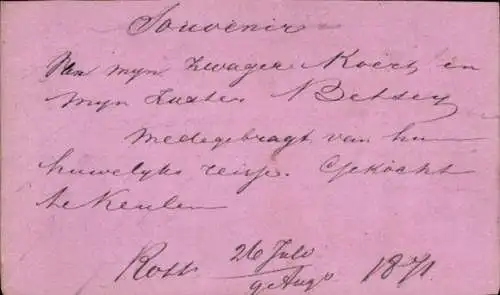 Souvenir
Van mijn Zwager Koert en
mijn Zuster Betsey
medegebragt van hun
huwelyks reisje. Gekocht
te Keulen
Rott 26 July
9 Augs 1871